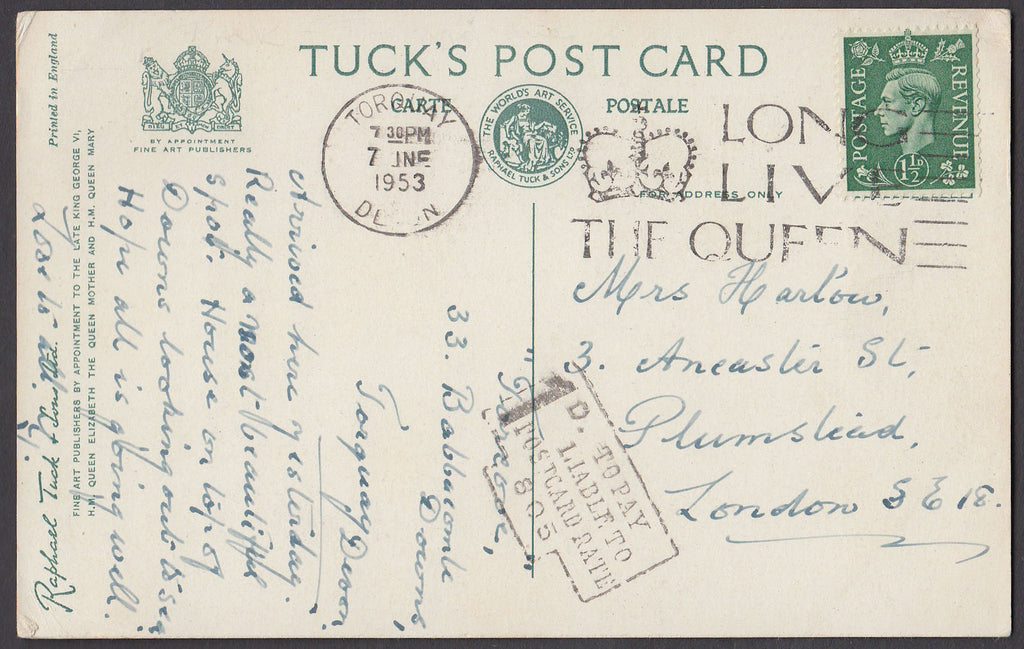 TUCK'S POST CARD
CARTE POSTALE
FOR ADDRESS ONLY
Printed in England
DIEU ET MON DROIT
BY APPOINTMENT
FINE ART PUBLISHERS
THE WORLD'S ART SERVICE
RAPHAEL TUCK & SONS LTD
TORQUAY
7 30PM
7 JNE
1953
DEVON
LONG
LIVE
THE QUEEN
POSTAGE REVENUE
1½D
Mrs Harlow,
3. Ancaster St,
Plumstead,
London SE 18.
1 D. TO PAY
LIABLE TO
POSTCARD RATE
805
33. Babbacombe
Downs,
Torquay Devon.
Arrived here yesterday.
Really a most beautiful
spot. House on top of
Downs looking out to sea
Hope all is going well.
Love to all
Raphael Tuck & Sons Ltd.
FINE ART PUBLISHERS BY APPOINTMENT TO THE LATE KING GEORGE VI,
H.M. QUEEN ELIZABETH THE QUEEN MOTHER AND H.M. QUEEN MARY